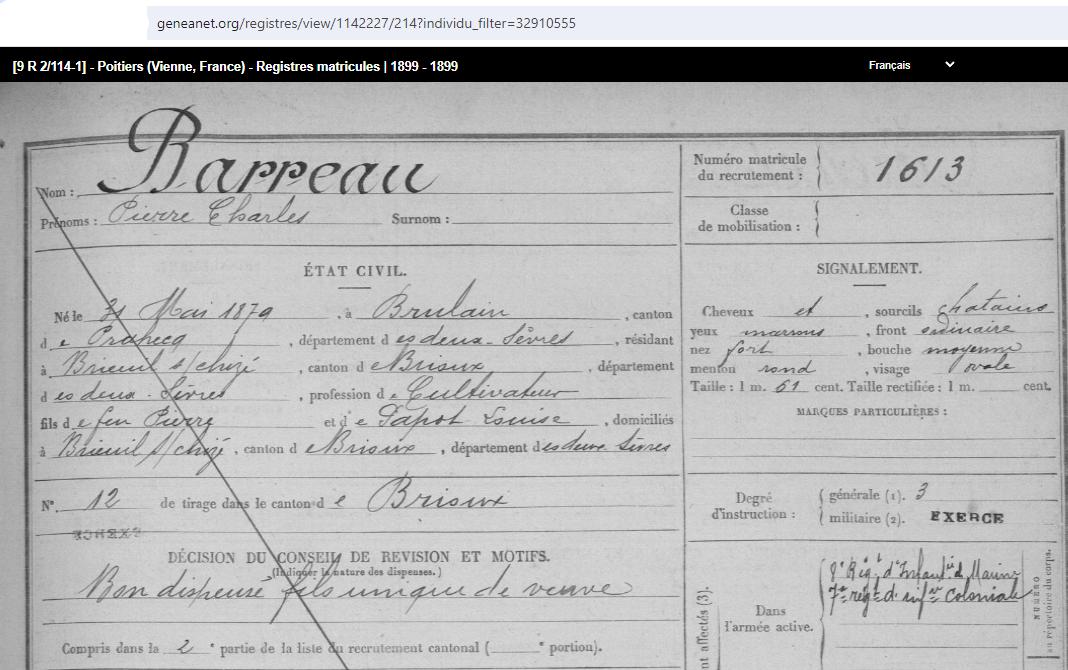 geneanet.org/registres/view/1142227/214?individu_filter=32910555
[9 R 2/114-1] - Poitiers (Vienne, France) - Registres matricules | 1899 - 1899
Français
Nom : Barreau
Prénoms : Pierre Charles Surnom :
Numéro matricule du recrutement : 1613
Classe de mobilisation :
ÉTAT CIVIL.
Né le 31 Mai 1879, à Brulain, canton
de Prahecq, département des deux-Sèvres, résidant
à Brieuil s/chizé, canton de Brioux, département
des deux-Sèvres, profession de Cultivateur
fils de feu Pierre et de Papot Louise, domiciliés
à Brieuil s/chizé, canton de Brioux, département des deux Sèvres
N° 12 de tirage dans le canton de Brioux
EXERCE
DÉCISION DU CONSEIL DE REVISION ET MOTIFS.
(Indiquer la nature des dispenses.)
Bon dispensé fils unique de veuve
Compris dans la 2e partie de la liste du recrutement cantonal ( e portion).
SIGNALEMENT.
Cheveux et, sourcils chatains
yeux marrons, front ordinaire
nez fort, bouche moyenne
menton rond, visage ovale
Taille : 1 m. 61 cent. Taille rectifiée : 1 m. cent.
MARQUES PARTICULIÈRES :
Degré d'instruction : générale (1). 3
militaire (2). EXERCE
nt affectés (3).
Dans l'armée active.
8e Régt d'Infanie de Marine
7e régt d'infie coloniale
NUMÉRO
au répertoire du corps.